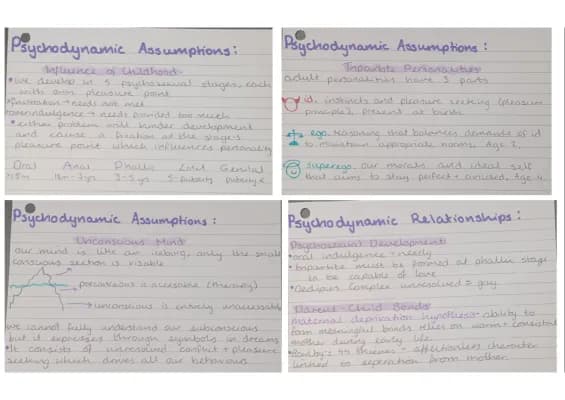 Psychodynamic Assumptions:
Influence of Childhood
• We develop in 5 psychosexual stages, each
with own pleasure point
frustration → needs not met
overindulgence → needs provided too much
• either problem will hinder development
and cause a fixation at the stage's
pleasure point which influences personality
Oral Anal Phallic Latent Genital
18m-3yrs 3-5 yrs 5-puberty puberty <
Psychodynamic Assumptions:
Tripartite Personalities
adult personalities have 3 parts
id. instincts and pleasure seeking (pleasure
principle), present at birth
ego. Reasoning that balances demands of id
to maintain appropriate norms, Age 2,
superego. our morals and ideal self
that aims to stay perfect + civilised, Age 4.
Psychodynamic Assumptions:
Unconscious Mind
our mind is like an iceberg, only the small
conscious section is visable
preconscious is accessible (therapy)
unconscious is entirely unaccessable
We cannot fully understand our subconscious
but it expresses through symbols in dreams
• It consists of unresolved conflict + pleasure
seeking which drives all our behaviour
Psychodynamic Relationships:
Psychosexual Development
• oral indulgence = needy
• tripartite must be formed at phallic stage
to be capable of love
• Oedipus Complex unresolved = gay
Parent-Child Bonds
maternal deprivation hypothesis - ability to
form meaningful bonds relies on warm + consistent
mother during early life.
• Bowlby's 44 thieves - affectionless character
linked to seperation from mother.